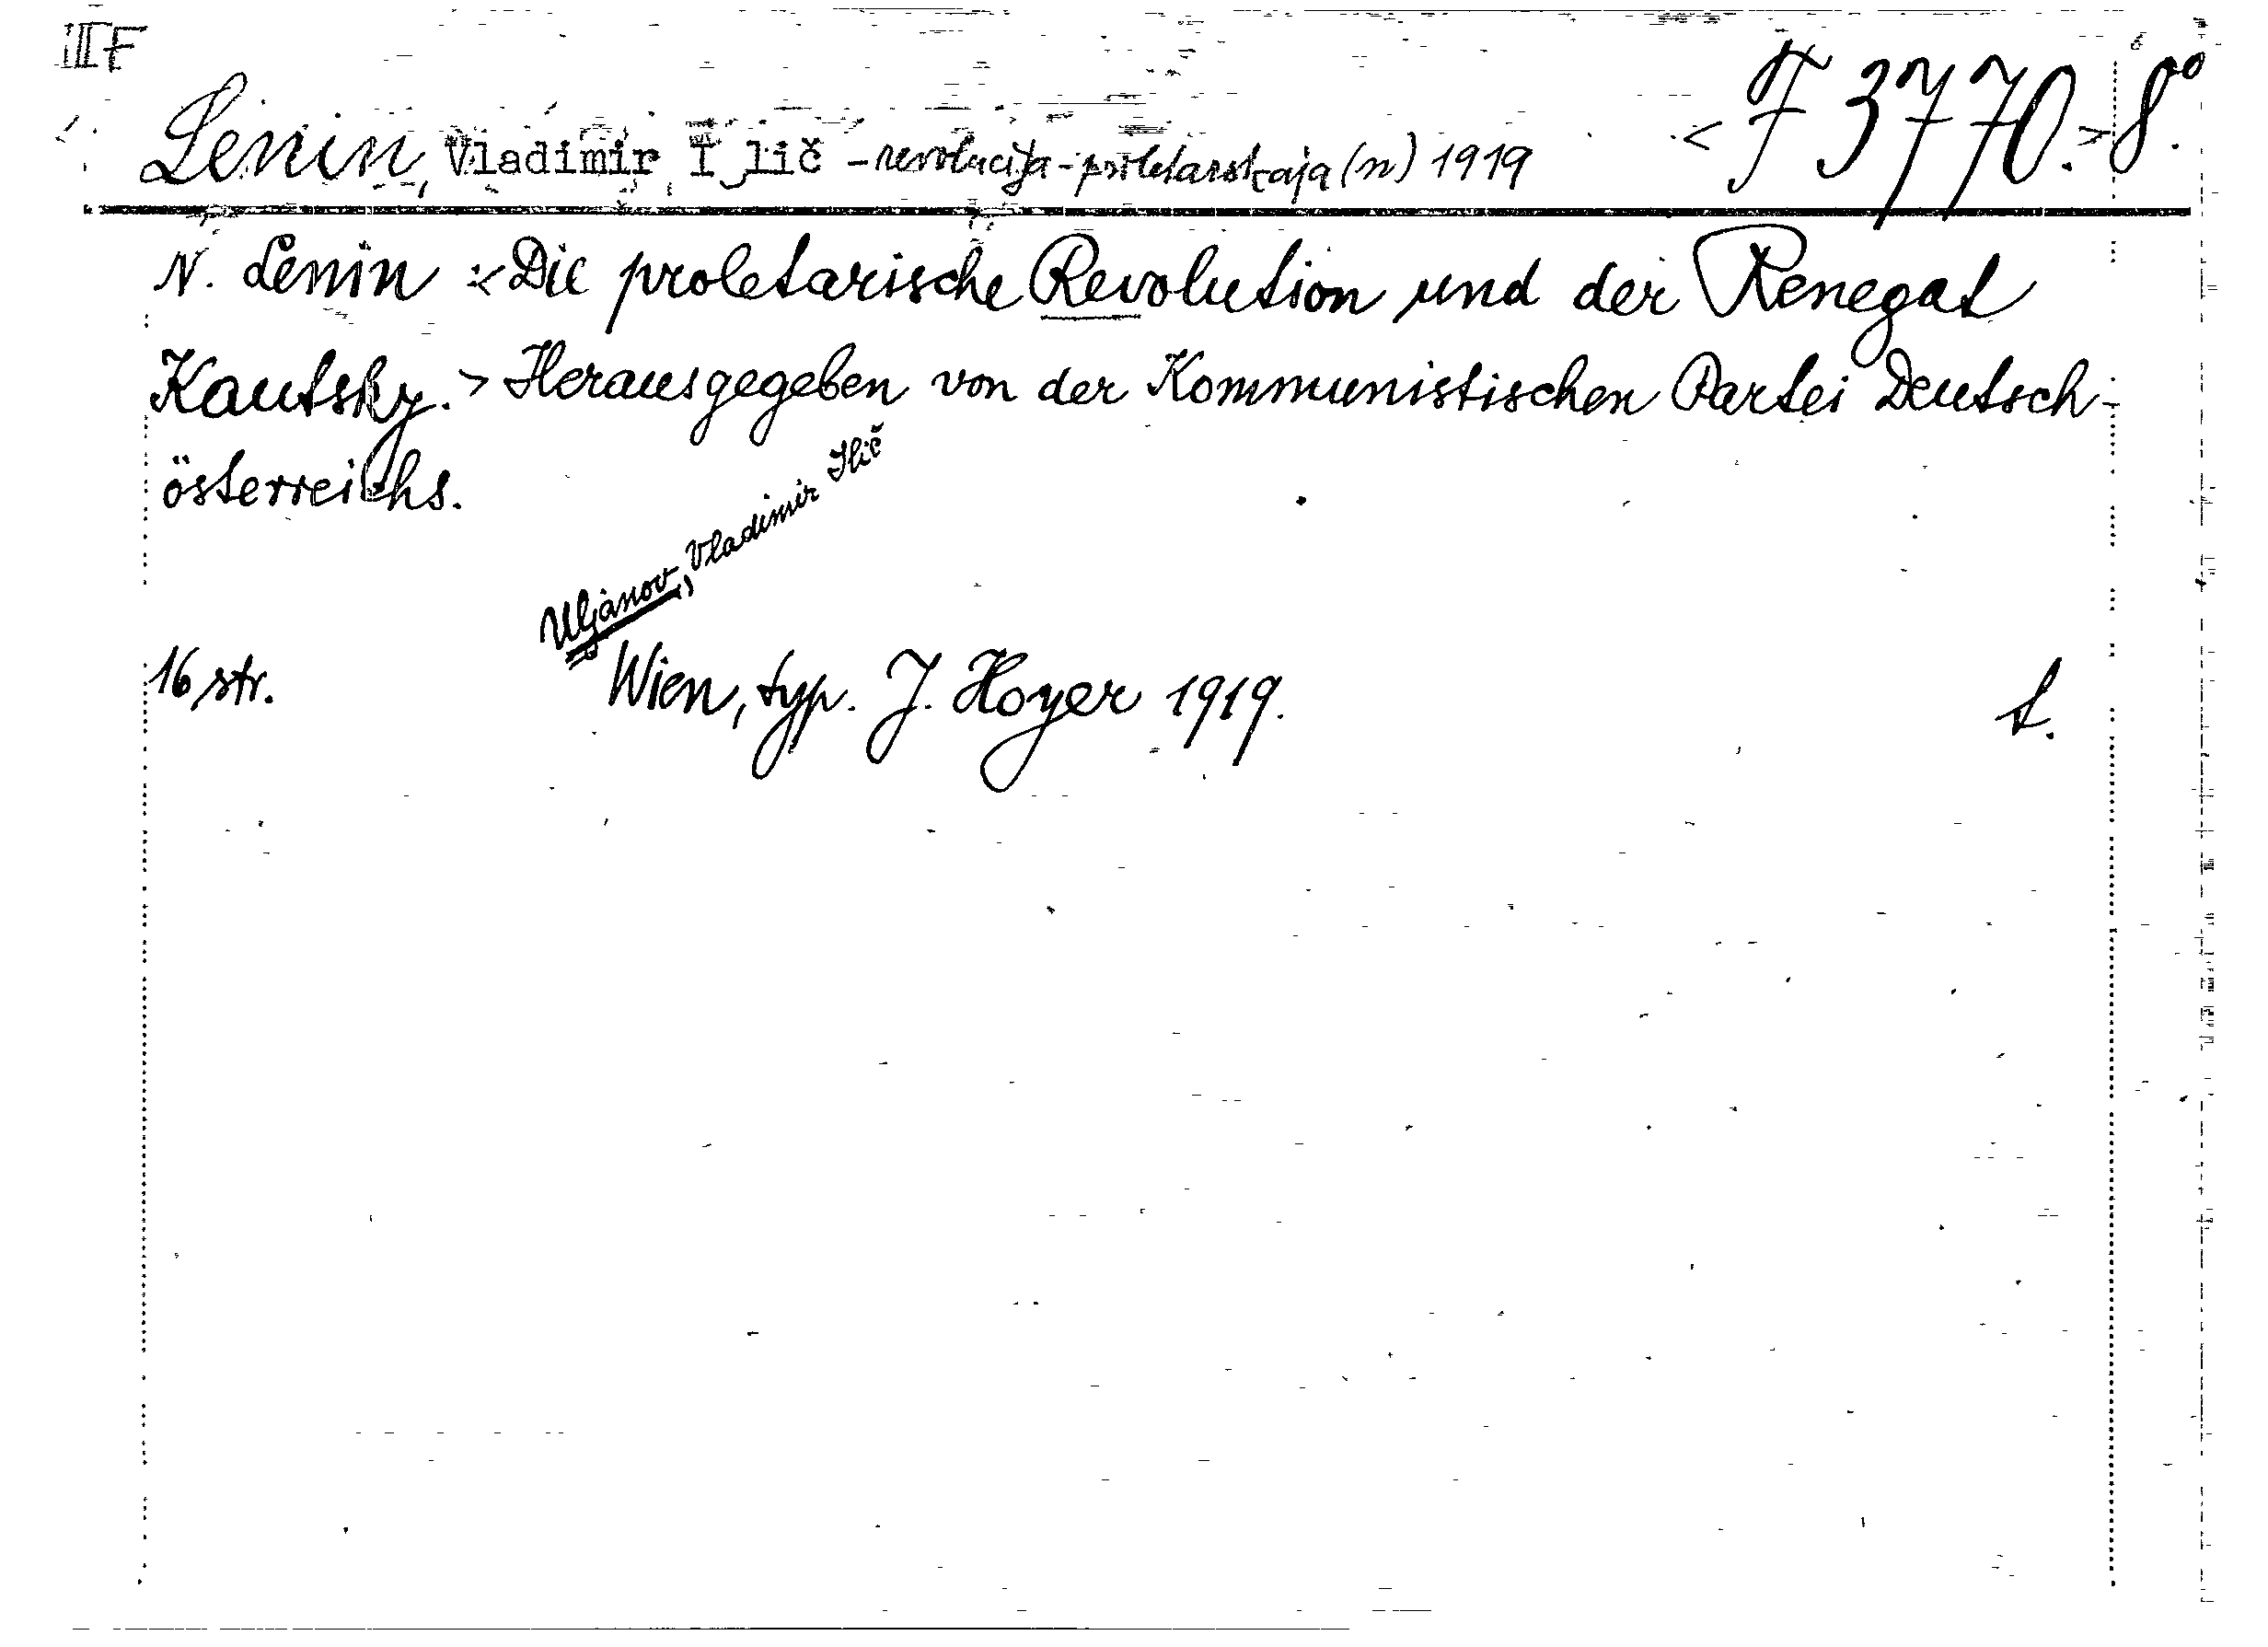 IIF
Lenin, Vladimir Ilič - revolucija - proletarskaja (n) 1919 < F 3770. > 8°.
N. Lenin : < Die proletarische Revolution und der Renegat
Kautsky. > Herausgegeben von der Kommunistischen Partei Deutsch-
österreichs.
Uljanov, Vladimir Ilič
16 str. Wien, typ. J. Hoyer 1919. t.